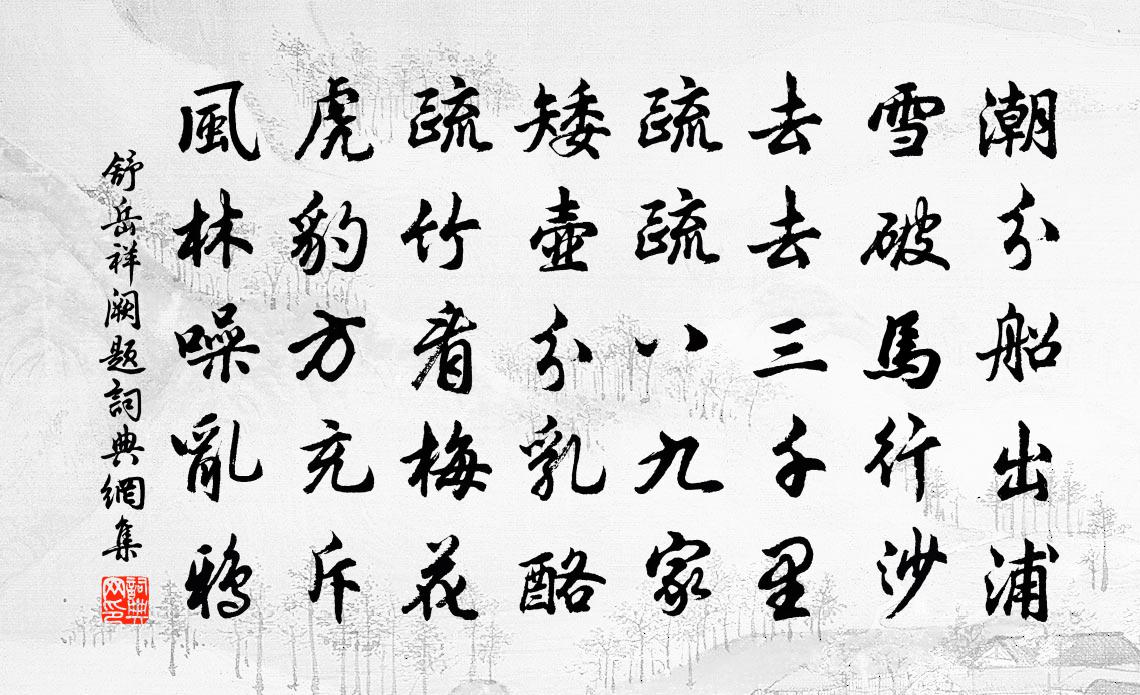 潮分船出浦
雪破馬行沙
去去三千里
疏疏八九家
矮壺分乳酪
疏竹看梅花
虎豹方充斥
風林噪亂鴉
舒岳祥闕題詞典網集
詞典网印